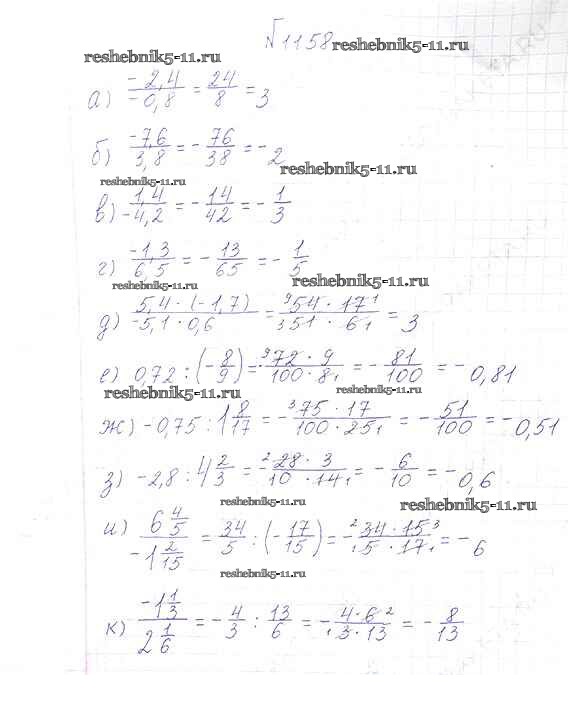 №1158 reshebnik5-11.ru
reshebnik5-11.ru
а) -2,4/-0,8 = 24/8 = 3
б) -7,6/3,8 = - 76/38 = - 2
reshebnik5-11.ru
reshebnik5-11.ru
в) 1,4/-4,2 = - 14/42 = - 1/3
г) -1,3/6,5 = - 13/65 = - 1/5
reshebnik5-11.ru
reshebnik5-11.ru
д) 5,4 · (-1,7)/-5,1 · 0,6 = 9 54 · 17 1/3 51 · 6 1 = 3
е) 0,72 : (- 8/9) = - 9 72 · 9/100 · 8 1 = - 81/100 = - 0,81
reshebnik5-11.ru
reshebnik5-11.ru
ж) -0,75 : 1 8/17 = - 3 75 · 17/100 · 25 1 = - 51/100 = - 0,51
з) -2,8 : 4 2/3 = - 2 28 · 3/10 · 14 1 = - 6/10 = - 0,6
reshebnik5-11.ru
reshebnik5-11.ru
и) 6 4/5/-1 2/15 = 34/5 : (- 17/15) = - 2 34 · 15 3/1 5 · 17 1 = - 6
reshebnik5-11.ru
к) -1 1/3/2 1/6 = - 4/3 : 13/6 = - 4 · 6 2/1 3 · 13 = - 8/13